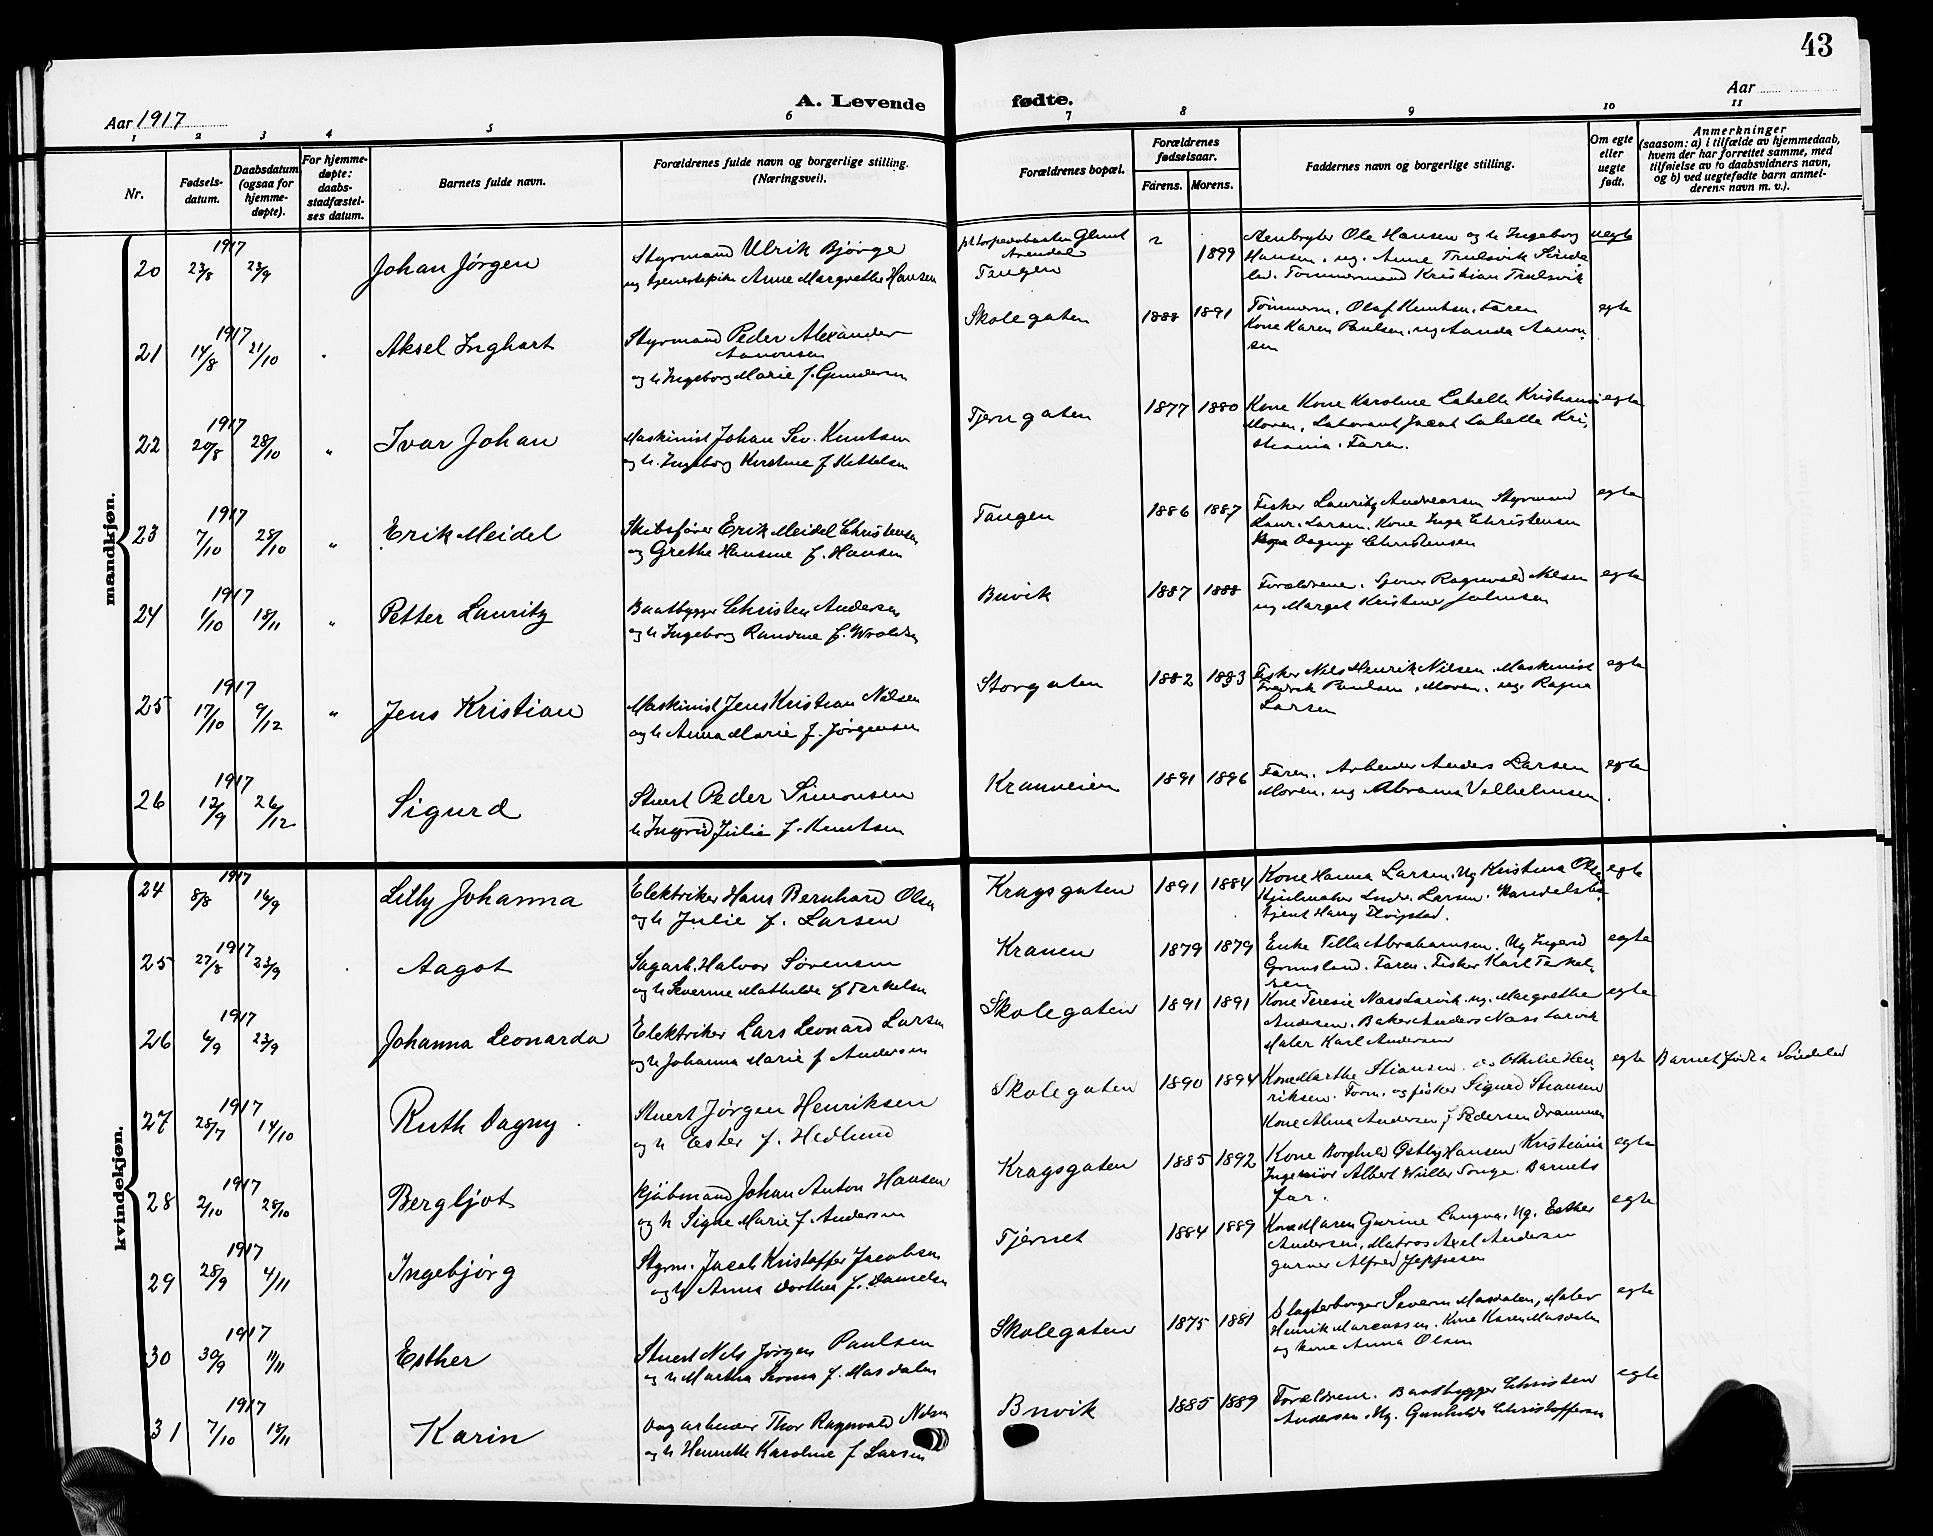 43
A. Levende fødte.
Aar 1917
Aar
1 2 3 4 5 6 7 8 9 10 11
Nr.
Fødsels-
datum.
Daabsdatum
(ogsaa for
hjemme-
døpte).
For hjemme-
døpte:
daabs-
stadfæstel-
ses datum.
Barnets fulde navn.
Forældrenes fulde navn og borgerlige stilling.
(Næringsvei).
Forældrenes bopæl.
Forældrenes
fødselsaar.
Farens. Morens.
Faddernes navn og borgerlige stilling.
Om egte
eller
uegte
født.
Anmerkninger
(saasom: a) i tilfælde av hjemmedaab,
hvem der har forrettet samme, med
tilføielse av to daabsvidners navn,
og b) ved uegtefødte barn anmel-
derens navn m. v.).
mandkjøn.
20 1917 23/8 23/9 Johan Jörgen
Styrmand Ulrik Bjørge
og tjenestepike Anne Margrethe Hansen
Arendal
Tangen
1899
Ole Hansen og h Ingeborg
Hansen, ug. Anne Trulsvik
Tømmermand Kristian Trulsvik
uegte
21 1917 14/8 21/10 Aksel Inghart
Styrmand Peder Alexander
Aanonsen
og h Ingeborg Marie f. Gundersen
Skolegaten
1888 1891
Tømmerm. Olaf Knutsen, Faren
Kone Karen Paulsen, ug Aanda Aanon
sen
egte
22 1917 20/8 28/10 " Ivar Johan
Maskinist Johan Sev. Knutsen
og h. Ingeborg Kirstine f Kittelsen
Tjerngaten
1877 1880
Kone Karoline Labella Kristiania
Moren, Laborant Jacob Labella Kri,
stiania. Faren.
egte
23 1917 7/10 28/10 " Erik Meidel
Skibsfører Erik Meidel Christensen
og Grethe Hansine f. Hansen
Tangen
1886 1887
Fisker Lauritz Andreassen Styrmand
Laur. Larsen, Kone Inga Christensen
Dagny Christensen
egte
24 1917 1/10 18/11 " Petter Lauritz
Baatbygger Christen Andersen
og h Ingeborg Randine f. Wroldsen
Buvik
1887 1888
Forældrene. Ragnvald Nilsen
og Margit Kristine Johnsen
egte
25 1917 17/10 9/12 " Jens Kristian
Maskinist Jens Kristian Nilsen
og h Anna Marie f. Jørgensen
Storgaten
1882 1883
Fisker Nils Henrik Nilsen. Maskinist
Fredrik Paulsen, Moren, ug. Ragna
Larsen
egte
26 1917 12/9 26/12 Sigurd
Stuert Peder Simonsen
h Ingrid Julie f. Knutsen
Kranveien
1891 1896
Faren. Arbeider Anders Larsen
Moren. ug Abrama Velhelmsen
egte
kvindekjøn.
24 1917 8/8 16/9 Lilly Johanna
Elektriker Hans Bernhard Olsen
og h Julie f. Larsen
Kragsgaten
1891 1884
Kone Hanna Larsen. Ug Kristina Olsen
Hjulmaker Ludv. Larsen. Handelsbe
tjent Harry
egte
25 1917 27/8 23/9 Aagot
Sagarb. Halvor Sørensen
og h Severine Mathilde f Terkelsen
Kranen
1879 1879
Enke Tilla Abrahamsen. Ug Ingerid
Grønsland. Faren. Fisker Karl Terkel-
sen
egte
26 1917 6/9 23/9 Johanna Leonarda
Elektriker Lars Leonard Larsen
og h Johanna Marie f Andersen
Skolegaten
1891 1891
Kone Teresie Næss Larvik. ug. Margrethe
Andersen. Baker Anders Næss Larvik
Maler Karl Andersen
egte
27 1917 28/7 14/10 Ruth Dagny
Stuert Jörgen Henriksen
og h Ester f. Hedlund
Skolegaten
1890 1894
Kone Marthe Stiansen. Othilie Hen
riksen. Form. og fisker Sigurd Stiansen
Kone Alma Andersen f Pedersen Drammen
egte
Barnet født i Søndeled
28 1917 2/10 28/10 Bergljot
Kjøbmand Johan Anton Hansen
og h Signe Marie f. Andersen
Kragsgaten
1885 1892
Kone Borghild Østby Hansen Kristiania
Ingeniør Albert Müller Songe. Barnets
far.
egte
29 1917 28/9 4/11 Ingebjörg
Styrm. Jacob Kristoffer Jacobsen
og h Anna Dorthea f. Danielsen
Tjernet
1884 1889
Kone Maren Gurine Langva. Ug. Esther
Andersen. Matros Axel Andersen
garver Alfred Jeppesen
egte
30 1917 30/9 11/11 Esther
Stuert Nils Jörgen Paulsen
og h Martha Serina f. Masdalen
Skolegaten
1875 1881
Slagterborger Severin Masdalen, Maler
Henrik Marcussen. Kone Karen Masdalen
og kone Anna Olsen
egte
31 1917 7/10 18/11 Karin
Dagarbeider Thor Ragnvald Nilsen
og h Henriette Karoline f Larsen
Buvik
1885 1889
Forældrene. Baatbygger Christen
Andersen. Ug. Gunhilda Christoffersen
egte